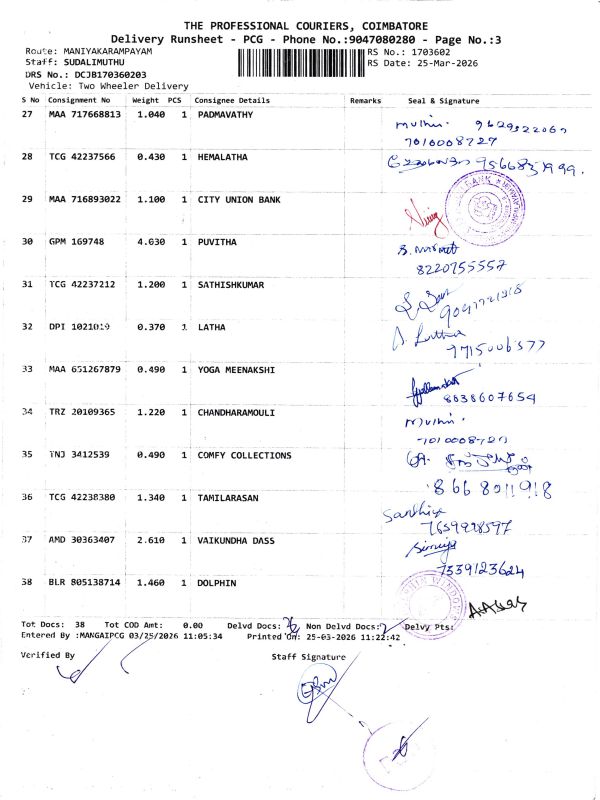 THE PROFESSIONAL COURIERS, COIMBATORE
Delivery Runsheet - PCG - Phone No.:9047080280 - Page No.:3
Route: MANIYAKARAMPAYAM RS No.: 1703602
Staff: SUDALIMUTHU RS Date: 25-Mar-2026
DRS No.: DCJB170360203
Vehicle: Two Wheeler Delivery
S No Consignment No Weight PCS Consignee Details Remarks Seal & Signature
27 MAA 717668813 1.040 1 PADMAVATHY
7010008727
28 TCG 42237566 0.430 1 HEMALATHA
29 MAA 716893022 1.100 1 CITY UNION BANK
30 GPM 169748 4.030 1 PUVITHA
8220755557
31 TCG 42237212 1.200 1 SATHISHKUMAR
32 DPI 1021019 0.370 1 LATHA
33 MAA 651267879 0.490 1 YOGA MEENAKSHI
8838607654
34 TRZ 20109365 1.220 1 CHANDHARAMOULI
35 TNJ 3412539 0.490 1 COMFY COLLECTIONS
8668011918
36 TCG 42238380 1.340 1 TAMILARASAN
Santhiya
37 AMD 30363407 2.610 1 VAIKUNDHA DASS
7539123624
38 BLR 805138714 1.460 1 DOLPHIN
Tot Docs: 38 Tot COD Amt: 0.00 Delvd Docs: Non Delvd Docs: Delvy Pts:
Entered By :MANGAIPCG 03/25/2026 11:05:34 Printed On: 25-03-2026 11:22:42
Verified By Staff Signature